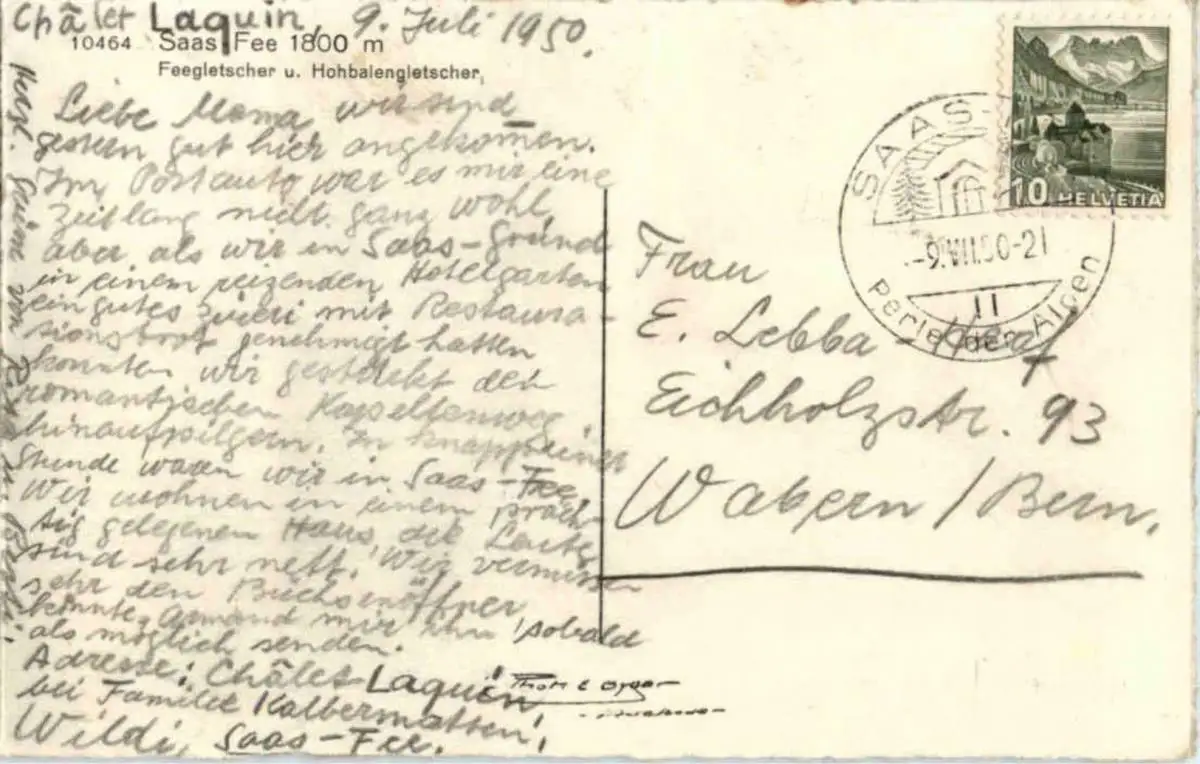 Châlet Laquin, 9. Juli 1950.
10464 Saas Fee 1800 m
Feegletscher u. Hohbalengletscher,
Liebe Mama, wir sind
gestern gut hier angekommen.
Im Postauto war es mir eine
Zeitlang nicht ganz wohl,
aber als wir in Saas-Grund
in einem reizenden Hotelgarten
ein gutes Zvieri mit Restaura-
tionsbrot genehmigt hatten
konnten wir gestärkt den
romantischen Kapellenweg
hinaufpilgern. In knapp einer
Stunde waren wir in Saas-Fee.
Wir wohnen in einem präch-
tig gelegenen Haus, die Leute
sind sehr nett. Wir vermissen
sehr den Büchsenöffner,
könnte Armand mir ihn sobald
als möglich senden.
Adresse: Châlet Laquin,
bei Familie Kalbermatten,
Wildi, Saas-Fee.
Herzl. Grüsse von
SAAS-
-9.VII.50-21
II
Perle der Alpen
10 HELVETIA
Frau
E. Lebba - Graf
Eichholzstr. 93
Wabern / Bern.